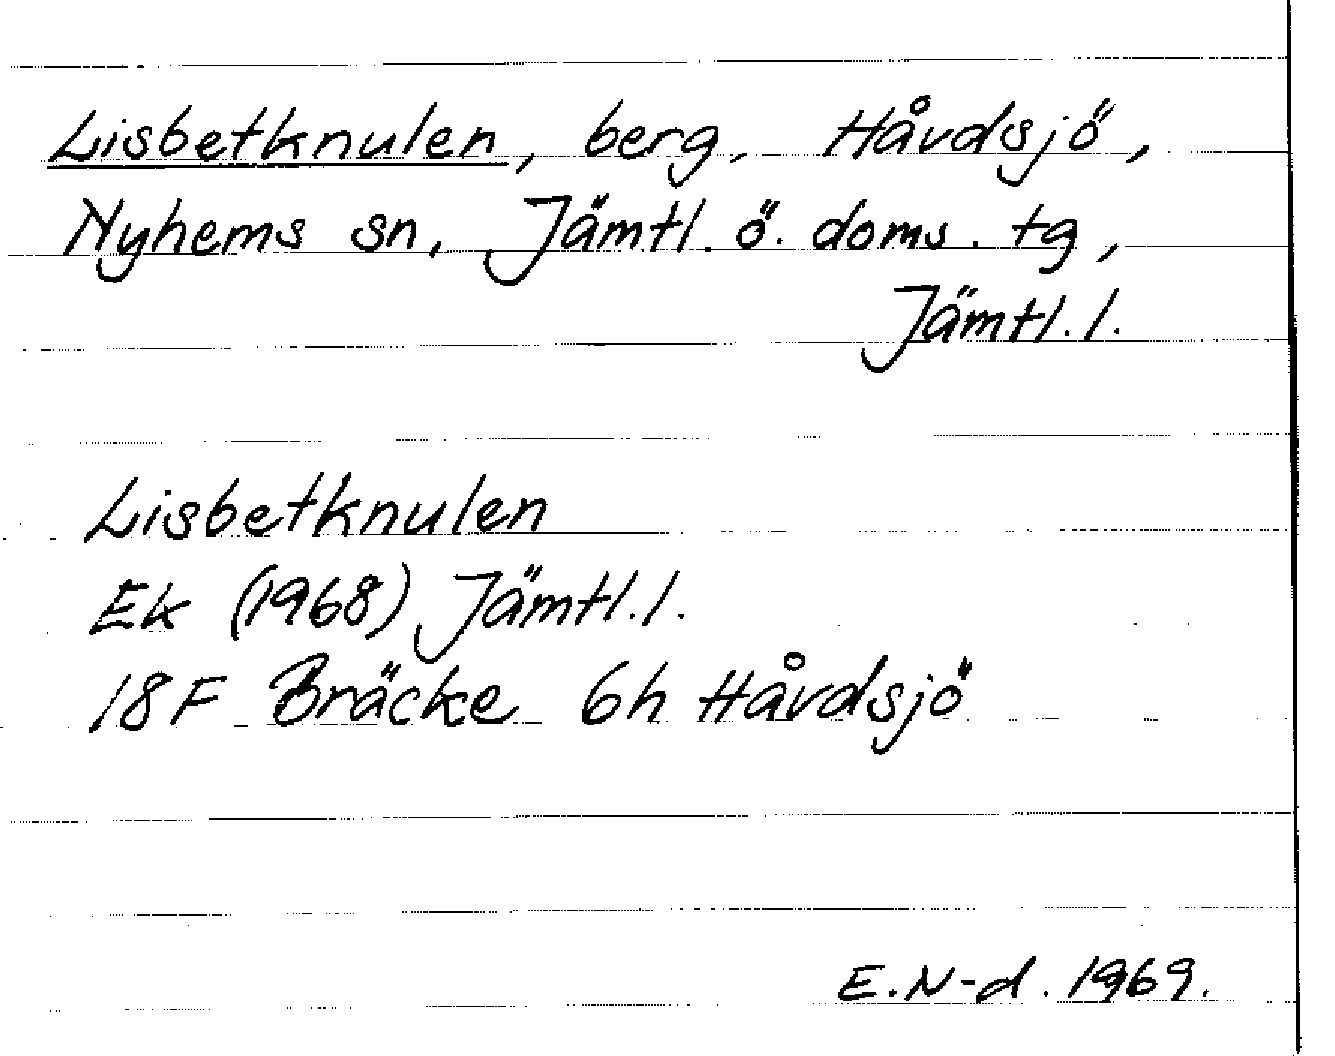 Lisbetknulen, berg, Håvdsjö,
Nyhems sn, Jämtl. ö. doms. tg,
Jämtl. l.
Lisbetknulen
Ek (1968) Jämtl. l.
18F Bräcke 6h Håvdsjö
E. N-d. 1969.